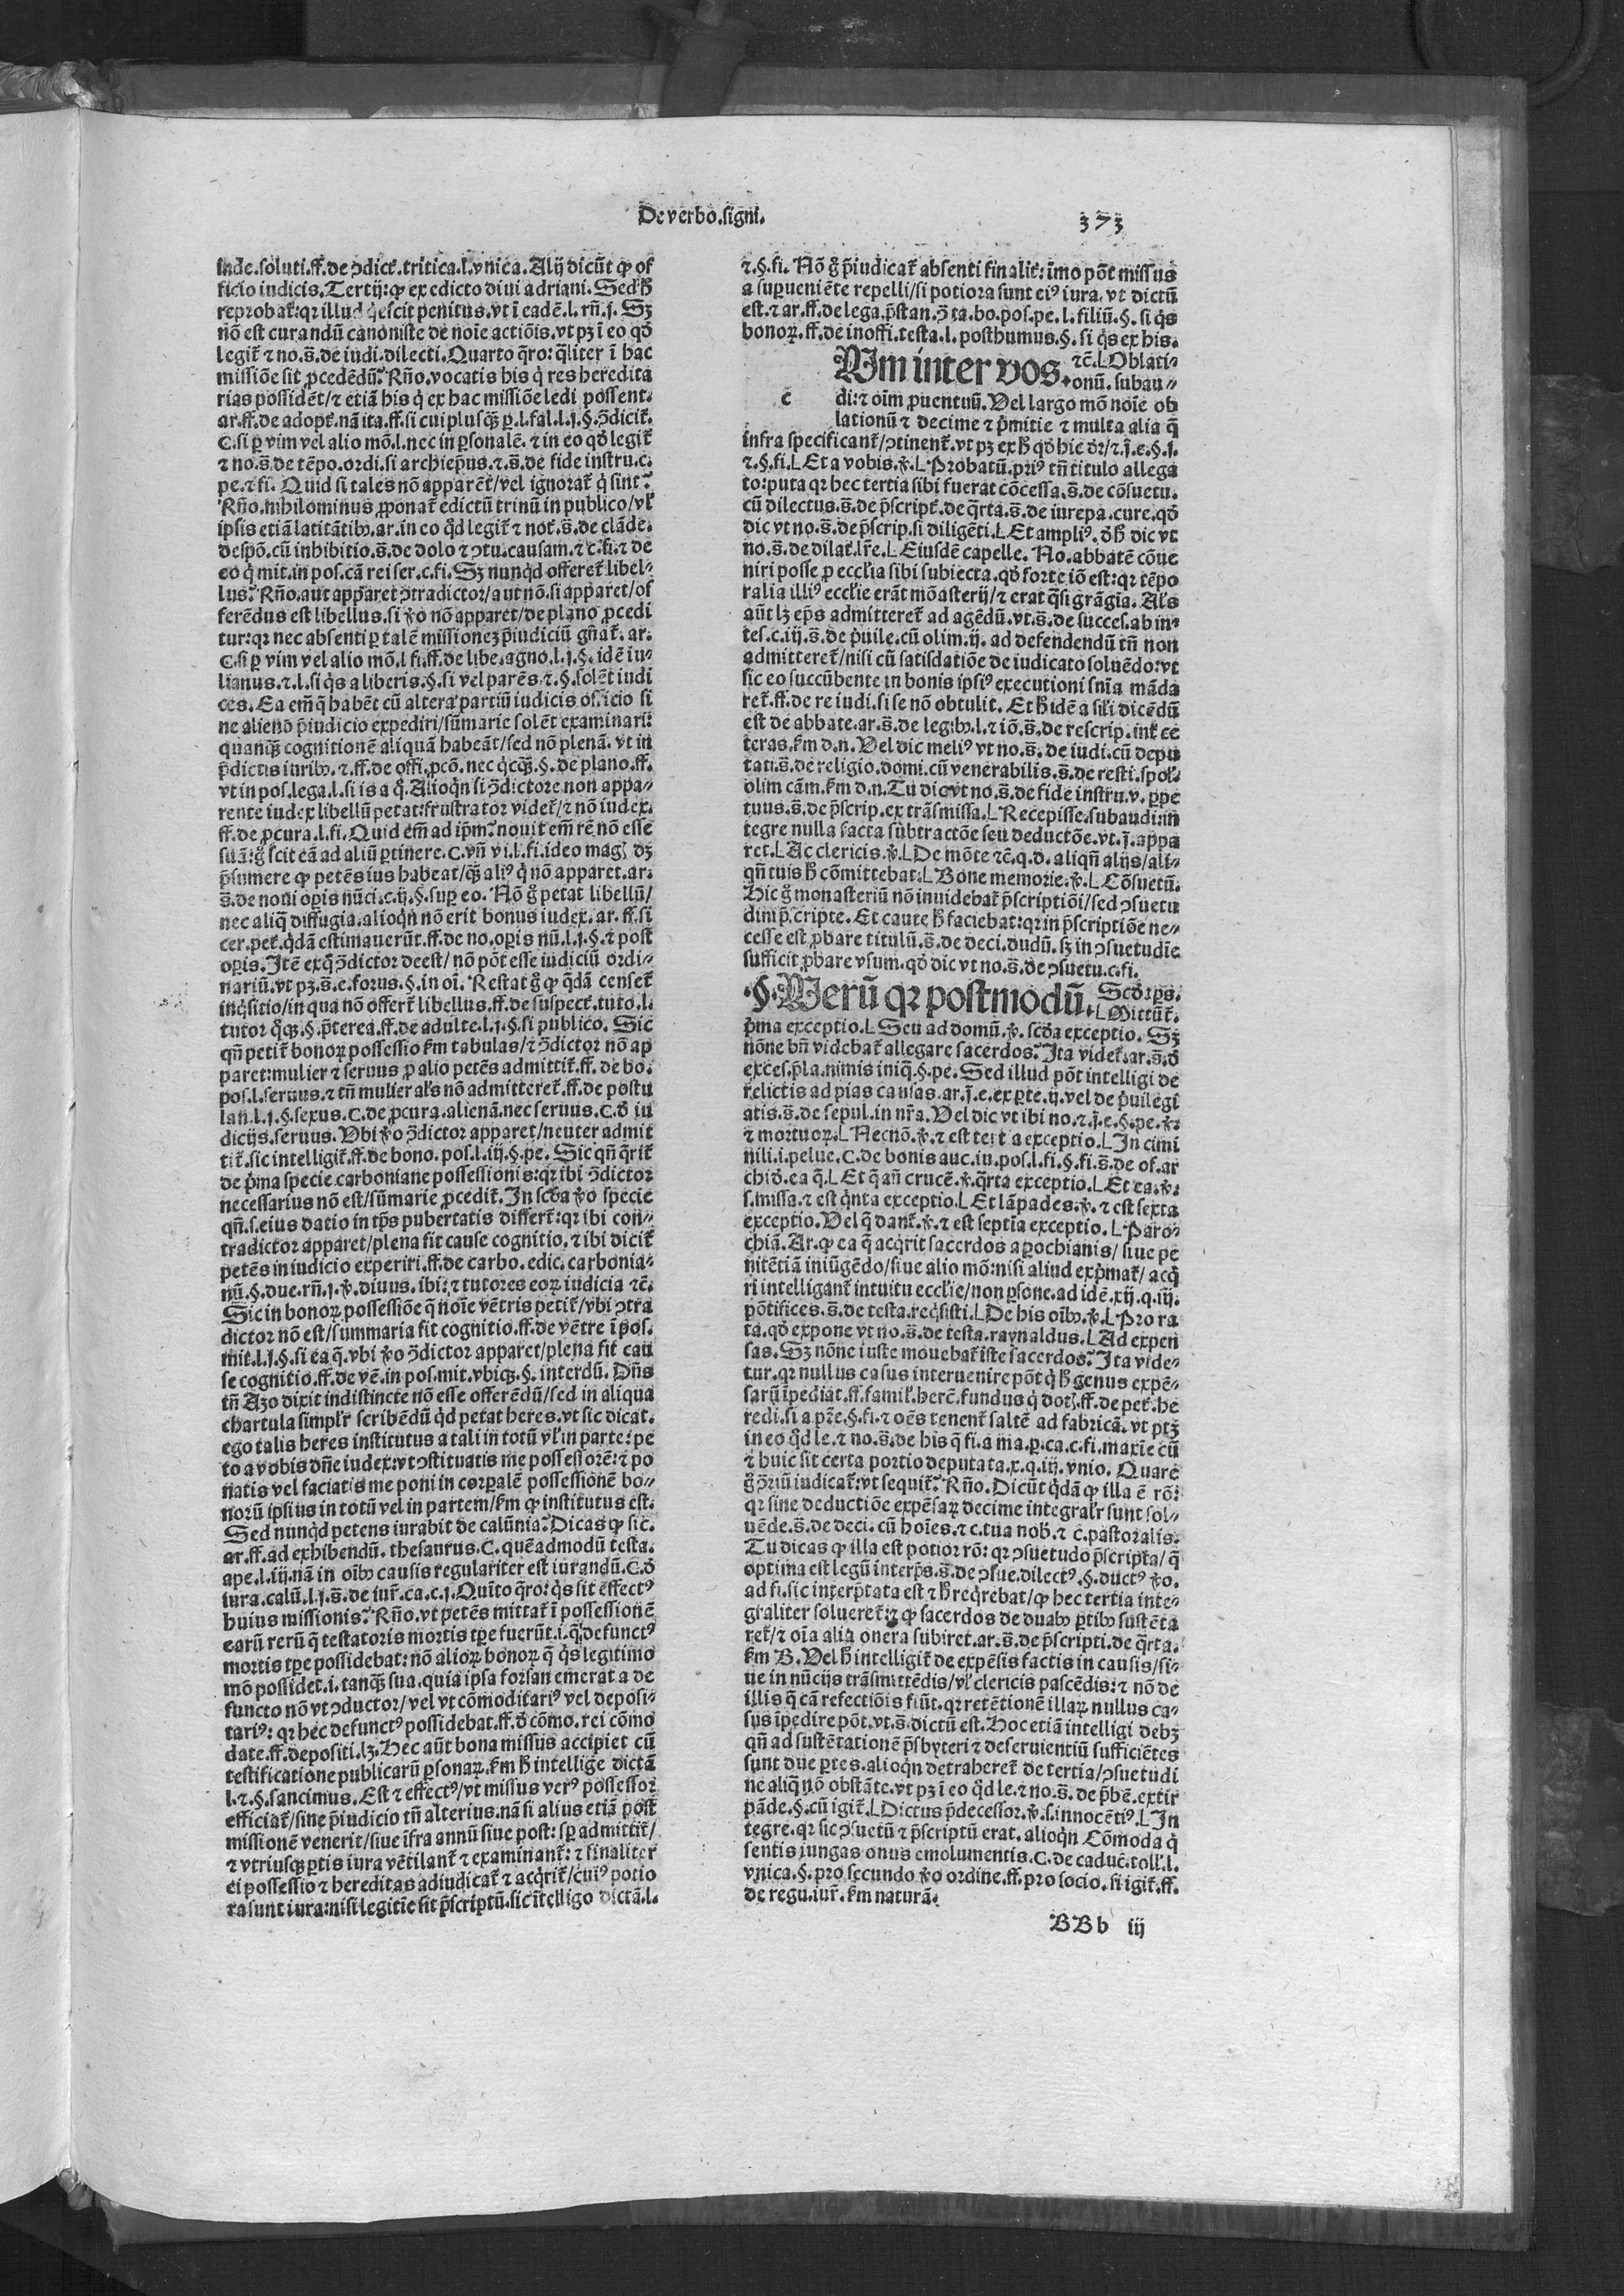 De verbo.signi.
373
inde.soluti.ff.de ↄdict̉.tritica.l.vnica. Alij dicūt ꝙ of
ficio iudicis. Tertij: ꝙ ex edicto diui adriani. Sed hͦ
reprobat̉: qꝛ illud qͥescit penitus. vt ī eadē.l.rn̄.j. Sꝫ
nō est curandū canoniste de noīe actiōis. vt pꝫ ī eo qd̓
legit̉ ⁊ no.s̄.de iudi.dilecti. Quarto qr̄o: qͣliter ī hac
missiōe sit ꝓcedēdū? Rn̄o. vocatis his qͥ res heredita
rias possidēt/⁊ etiā his qͥ ex hac missiōe ledi possent.
ar.ff.de adopt̉. nā ita.ff.si cui plusqͣꝫ ꝑ.l.fal.l.j.§.ↄdicit̉.
C.si ꝑ vim vel alio mō.l.nec in ꝑsonalē.⁊ in eo qd̓ legit̉
⁊ no.s̄.de tēpo.ordi.si archiep̄us.⁊.s̄.de fide instru.c.
pe.⁊ fi. Quid si tales nō apparēt̉/vel ignorat̉ qͥ sint?
Rn̄o. nihilominus ꝓponat̉ edictū trinū in publico/vl̓
ipsis etiā latitātibꝰ. ar. in eo qͥd legit̉ ⁊ not̉.s̄.de clāde.
despō.cū inhibitio.s̄.de dolo ⁊ ↄtu.causam.⁊ c.fi.⁊ de
eo qͥ mit.in pos.cā rei ser.c.fi. Sꝫ nunqͥd offeret̉ libel-
lus? Rn̄o. aut apparet ↄtradictor/aut nō. si apparet/of
ferēdus est libellus. si ꝟo nō apparet/de plano ꝓcedi
tur: qꝛ nec absenti ꝑ talē missionez p̄iudiciū gn̄at̉. ar.
C.si ꝑ vim vel alio mō.l fi.ff.de libe.agno.l.j.§.idē iu-
lianus.⁊.l.si qͥs a liberis.§.si vel parēs.⁊.§.solēt iudi
ces. Ea em̄ qͥ habēt cū altera partiū iudicis officio si
ne alieno p̄iudicio expediri/sūmarie solēt examinari:
quanqͣꝫ cognitionē aliquā habeāt/sed nō plenā. vt in
p̄dictis iuribꝰ.⁊.ff.de offi.ꝓcō.nec qͥcqͣꝫ.§.de plano.ff.
vt in pos.lega.l.si is a qͦ. Alioqͥn si ↄdictore non appa-
rente iudex libellū petat: frustrator videt̉/⁊ nō iudex.
ff.de ꝓcura.l.fi. Quid em̄ ad ip̄m? nouit em̄ rē nō esse
suā: gͦ scit eā ad aliū ꝑtinere. C.vn̄ vi.l.fi. ideo magꝭ dꝫ
p̄sumere ꝙ petēs ius habeat/qͣꝫ aliꝰ qͥ nō apparet. ar.
s̄.de noui oꝑis nūci.c.ij.§.suꝑ eo. Nō gͦ petat libellū/
nec aliqͣ diffugia. alioqͥn nō erit bonus iudex. ar.ff.si
cer.pet̉.qͥdā estimauerūt.ff.de no.oꝑis nū.l.j.§.⁊ post
oꝑis. Itē ex qͦ ↄdictor deest/nō pōt esse iudiciū ordi-
nariū. vt pꝫ.s̄.e.forus.§.in oī. Restat gͦ ꝙ qͥdā censet̉
inqͥsitio/in qua nō offert̉ libellus. ff.de suspect̉.tuto.l.
tutor qͦꝙ.§.p̄terea.ff.de adulte.l.j.§.si publico. Sic
qn̄ petit̉ bonoꝝ possessio ẜm tabulas/⁊ ↄdictor nō ap
paret: mulier ⁊ seruus ꝓ alio petēs admittit̉. ff.de bo.
pos.l.seruus. ⁊ tn̄ mulier al̓s nō admitteret̉. ff.de postu
lan.l.j.§.sexus. C.de ꝓcura.alienā.nec seruus. C.d̓ iu
dicijs.seruus. Vbi ꝟo ↄdictor apparet/neuter admit
tit̉. sic intelligit̉.ff.de bono.pos.l.iij.§.pe. Sic qn̄ qͣrit̉
de pͥma specie carboniane possessionis: qꝛ ibi ↄdictor
necessarius nō est/sūmarie ꝓcedit̉. In scd̓a ꝟo specie
qn̄.s.eius datio in tp̄s pubertatis differt̉: qꝛ ibi con-
tradictor apparet/plena fit cause cognitio. ⁊ ibi dicit̉
petēs in iudicio experiri. ff.de carbo.edic.carbonia-
nū.§.due.rn̄.j.ꝟ.diuus. ibi: ⁊ tutores eoꝝ iudicia ⁊c̄.
Sic in bonoꝝ possessiōe qͣ noīe vētris petit̉/vbi ↄtra
dictor nō est/summaria fit cognitio. ff.de vētre ī pos.
mit.l.j.§.si ea qͣ. vbi ꝟo ↄdictor apparet/plena fit cau
se cognitio. ff.de vē.in pos.mit.vbiqꝫ.§.interdū. Dn̄s
tn̄ Azo dixit indistincte nō esse offerēdū/sed in aliqua
chartula simpl̓r scribēdū qͥd petat heres. vt sic dicat.
ego talis heres institutus a tali in totū vl̓ in parte: pe
to a vobis dn̄e iudex: vt ↄstituatis me possessorē: ⁊ po
natis vel faciatis me poni in corꝑalē possessionē bo-
norū ipsius in totū vel in partem/ẜm ꝙ institutus est.
Sed nunqͥd petens iurabit de calūnia? Dicas ꝙ sic.
ar.ff.ad exhibendū.thesaurus. C.quēadmodū testa.
ape.l.iij. nā in oībꝰ causis regulariter est iurandū. C.d̓
iura.calū.l.j.s̄.de iur̓.ca.c.j. Quīto qr̄o: qͥs sit effectꝰ
huius missionis? Rn̄o. vt petēs mittat̉ ī possessionē
earū rerū qͣ testatoris mortis tꝑe fuerūt.i.qͣs defunctꝰ
mortis tꝑe possidebat: nō alioꝝ bonoꝝ qͣ qͥs legitimo
mō possidet.i.tanqͣꝫ sua. quia ipsa forsan emerat a de
functo nō vt ↄductor/vel vt cōmoditariꝰ vel deposi-
tariꝰ: qꝛ hec defunctꝰ possidebat. ff.d̓ cōmo.rei cōmo
date.ff.depositi.lꝫ. Hec aūt bona missus accipiet cū
testificatione publicarū ꝑsonaꝝ. ẜm hͦ intellige dictā
l.⁊.§.sancimus. Est ⁊ effectꝰ/vt missus verꝰ possessor
efficiat̉/sine p̄iudicio tn̄ alterius. nā si alius etiā post
missionē venerit/siue īfra annū siue post: sꝑ admittit̉/
⁊ vtriusqꝫ ꝑtis iura vētilant̉ ⁊ examinant̉: ⁊ finaliter
ei possessio ⁊ hereditas adiudicat̉ ⁊ acqͥrit̉/cuiꝰ potio
ra sunt iura: nisi legitīe sit p̄scriptū. sic ītelligo dictā.l.
⁊.§.fi. Nō gͦ p̄iudicat̉ absenti finalit̓: imo pōt missus
a suꝑueniēte repelli/si potiora sunt eiꝰ iura. vt dictū
est.⁊ ar.ff.de lega.p̄stan.ↄͣ ta.bo.pos.pe.l.filiū.§.si qͥs
bonoꝝ.ff.de inoffi.testa.l.posthumus.§.si qͥs ex his.
c
Um inter vos.
⁊c̄. Oblati-
onū. subau-
di: ⁊ oīm ꝓuentuū. Vel largo mō noīe ob
lationū ⁊ decime ⁊ pͥmitie ⁊ multa alia qͣ
infra specificant̉/ↄtinent̉. vt pꝫ ex hͦ qd̓ hic dr̄/⁊.j̄.e.§.j.
⁊.§.fi. Et a vobis.ꝟ. Probatū. priꝰ tn̄ titulo allega
to: puta qꝛ hec tertia sibi fuerat cōcessa. s̄.de cōsuetu.
cū dilectus.s̄.de p̄script̉.de qͣrta.s̄.de iurepa.cure.qd̓
dic vt no.s̄.de p̄scrip.si diligēti. Et ampliꝰ. d̓ hͦ dic vt
no.s̄.de dilat̉.lr̄e. Eiusdē capelle. No. abbatē cōue
niri posse ꝓ eccl̓ia sibi subiecta. qd̓ forte iō est: qꝛ tēpo
ralia illiꝰ eccl̓ie erāt mōasterij/⁊ erat qͣsi grāgia. Al̓s
aūt lꝫ ep̄s admitteret̉ ad agēdū. vt.s̄.de succes.ab in-
tes.c.iij.s̄.de pͥuile.cū olim.ij. ad defendendū tn̄ non
admitteret̉/nisi cū satisdatiōe de iudicato soluēdo: vt
sic eo succūbente in bonis ipsiꝰ executioni snīa māda
ret̉. ff.de re iudi.si se nō obtulit. Et hͦ idē a sil̓i dicēdū
est de abbate. ar.s̄.de legibꝰ.l.⁊ iō.s̄.de rescrip.int̉ ce
teras.ẜm d.n. Vel dic meliꝰ vt no.s̄.de iudi.cū depu
tati.s̄.de religio.domi.cū venerabilis.s̄.de resti.spol̓.
olim cām.ẜm d.n. Tu dic vt no.s̄.de fide instru.v.ꝑpe
tuus.s̄.de p̄scrip.ex trāsmissa. Recepisse. subaudi: in
tegre nulla facta subtractōe seu deductōe. vt.j̄.appa
ret. Ac clericis.ꝟ. De mōte ⁊c̄.q.d. aliqn̄ alijs/ali-
qn̄ tuis hͦ cōmittebat. Bone memorie.ꝟ. Cōsuetū.
Hic gͦ monasteriū nō inuidebat̉ p̄scriptiōi/sed ↄsuetu
dini p̄scripte. Et caute hͦ faciebat: qꝛ in p̄scriptiōe ne-
cesse est ꝓbare titulū. s̄.de deci.dudū. sꝫ in ↄsuetudīe
sufficit ꝓbare vsum. qd̓ dic vt no.s̄.de ↄsuetu.c.fi.
§. Verū qꝛ postmodū.
Scd̓a ps.
Mittūt̉.
pͥma exceptio. Seu ad domū.ꝟ. scd̓a exceptio. Sꝫ
nōne bn̄ videbat̉ allegare sacerdos? Ita videt̉. ar.s̄.d̓
exces.p̄la.nimis iniq̄.§.pe. Sed illud pōt intelligi de
relictis ad pias causas. ar.j̄.e.ex ꝑte.ij. vel de pͥuilegi
atis.s̄.de sepul.in nr̄a. Vel dic vt ibi no.⁊.j̄.e.§.pe.ꝟ.
⁊ mortuoꝝ. Necnō.ꝟ.⁊ est tertia exceptio. In cimi
nili.i.pelue. C.de bonis auc.iu.pos.l.fi.§.fi.s̄.de of.ar
chid̓.ea qͣ. Et qͣ an̄ crucē.ꝟ. qͣrta exceptio. Et ea.ꝟ:
s.missa.⁊ est qͥnta exceptio. Et lāpades.ꝟ.⁊ est sexta
exceptio. Vel qͣ dant̉.ꝟ.⁊ est septīa exceptio. Paro-
chiā. Ar. ꝙ ea qͣ acqͥrit sacerdos a ꝑochianis/siue pe
nitētiā iniūgēdo/siue alio mō: nisi aliud expͥmat̉/acqͥ
ri intelligant̉ intuitu eccl̓ie/non ꝑsone. ad idē.xij.q.iij.
pōtifices.s̄.de testa.reqͥsisti. De his oībꝰ.ꝟ. Pro ra
ta. qd̓ expone vt no.s̄.de testa.raynaldus. Ad expen
sas. Sꝫ nōne iuste mouebat̉ iste sacerdos? Ita vide-
tur. qꝛ nullus casus interuenire pōt qͥ hͦ genus expē-
sarū īpediat. ff.famil̓.herē.fundus qͥ dotꝭ.ff.de pet̉.he
redi.si a pr̄e.§.fi.⁊ oēs tenent̉ saltē ad fabricā. vt ptꝫ
in eo qͥd le.⁊ no.s̄.de his qͣ fi.a ma.ꝑ.ca.c.fi. maxīe cū
⁊ huic sit certa portio deputata.x.q.iij.vnio. Quare
gͦ ↄͣriū iudicat̉: vt sequit̉? Rn̄o. Dicūt qͥdā ꝙ illa ē rō:
qꝛ sine deductiōe expēsaꝝ decime integral̓r sunt sol-
uēde. s̄.de deci.cū hoīes.⁊ c.tua nob̓.⁊ c.pastoralis.
Tu dicas ꝙ illa est potior rō: qꝛ ↄsuetudo p̄scripta/qͣ
optima est legū interp̄s. s̄.de ↄsue.dilectꝰ.§.ductꝰ ꝟo.
ad fi. sic interp̄tata est ⁊ hͦ reqͥrebat/ꝙ hec tertia inte-
graliter solueret̉: ⁊ ꝙ sacerdos de duabꝰ ꝑtibꝰ sustēta
ret̉/⁊ oīa alia onera subiret. ar.s̄.de p̄scripti.de qͣrta.
ẜm B. Vel hͦ intelligit̉ de expēsis factis in causis/si-
ue in nūcijs trāsmittēdis/vl̓ clericis pascēdis: ⁊ nō de
illis qͣ cā refectiōis fiūt. qꝛ retētionē illaꝝ nullus ca-
sus īpedire pōt. vt.s̄.dictū est. Hoc etiā intelligi debꝫ
qn̄ ad sustētationē p̄sbyteri ⁊ deseruientiū sufficiētes
sunt due ꝑtes. alioqͥn detraheret̉ de tertia/ↄsuetudi
ne aliqͣ nō obstāte. vt pꝫ ī eo qͥd le.⁊ no.s̄.de p̄bē.extir
pāde.§.cū igit̉. Dictus p̄decessor.ꝟ.s.innocētiꝰ. In
tegre. qꝛ sic ↄsuetū ⁊ p̄scriptū erat. alioqͥn Cōmoda qͥ
sentis iungas onus emolumentis. C.de caduc̉.toll̓.l.
vnica.§.pro secundo ꝟo ordine.ff.pro socio.si igit̉.ff.
de regu.iur̓.ẜm naturā.
BBb iij